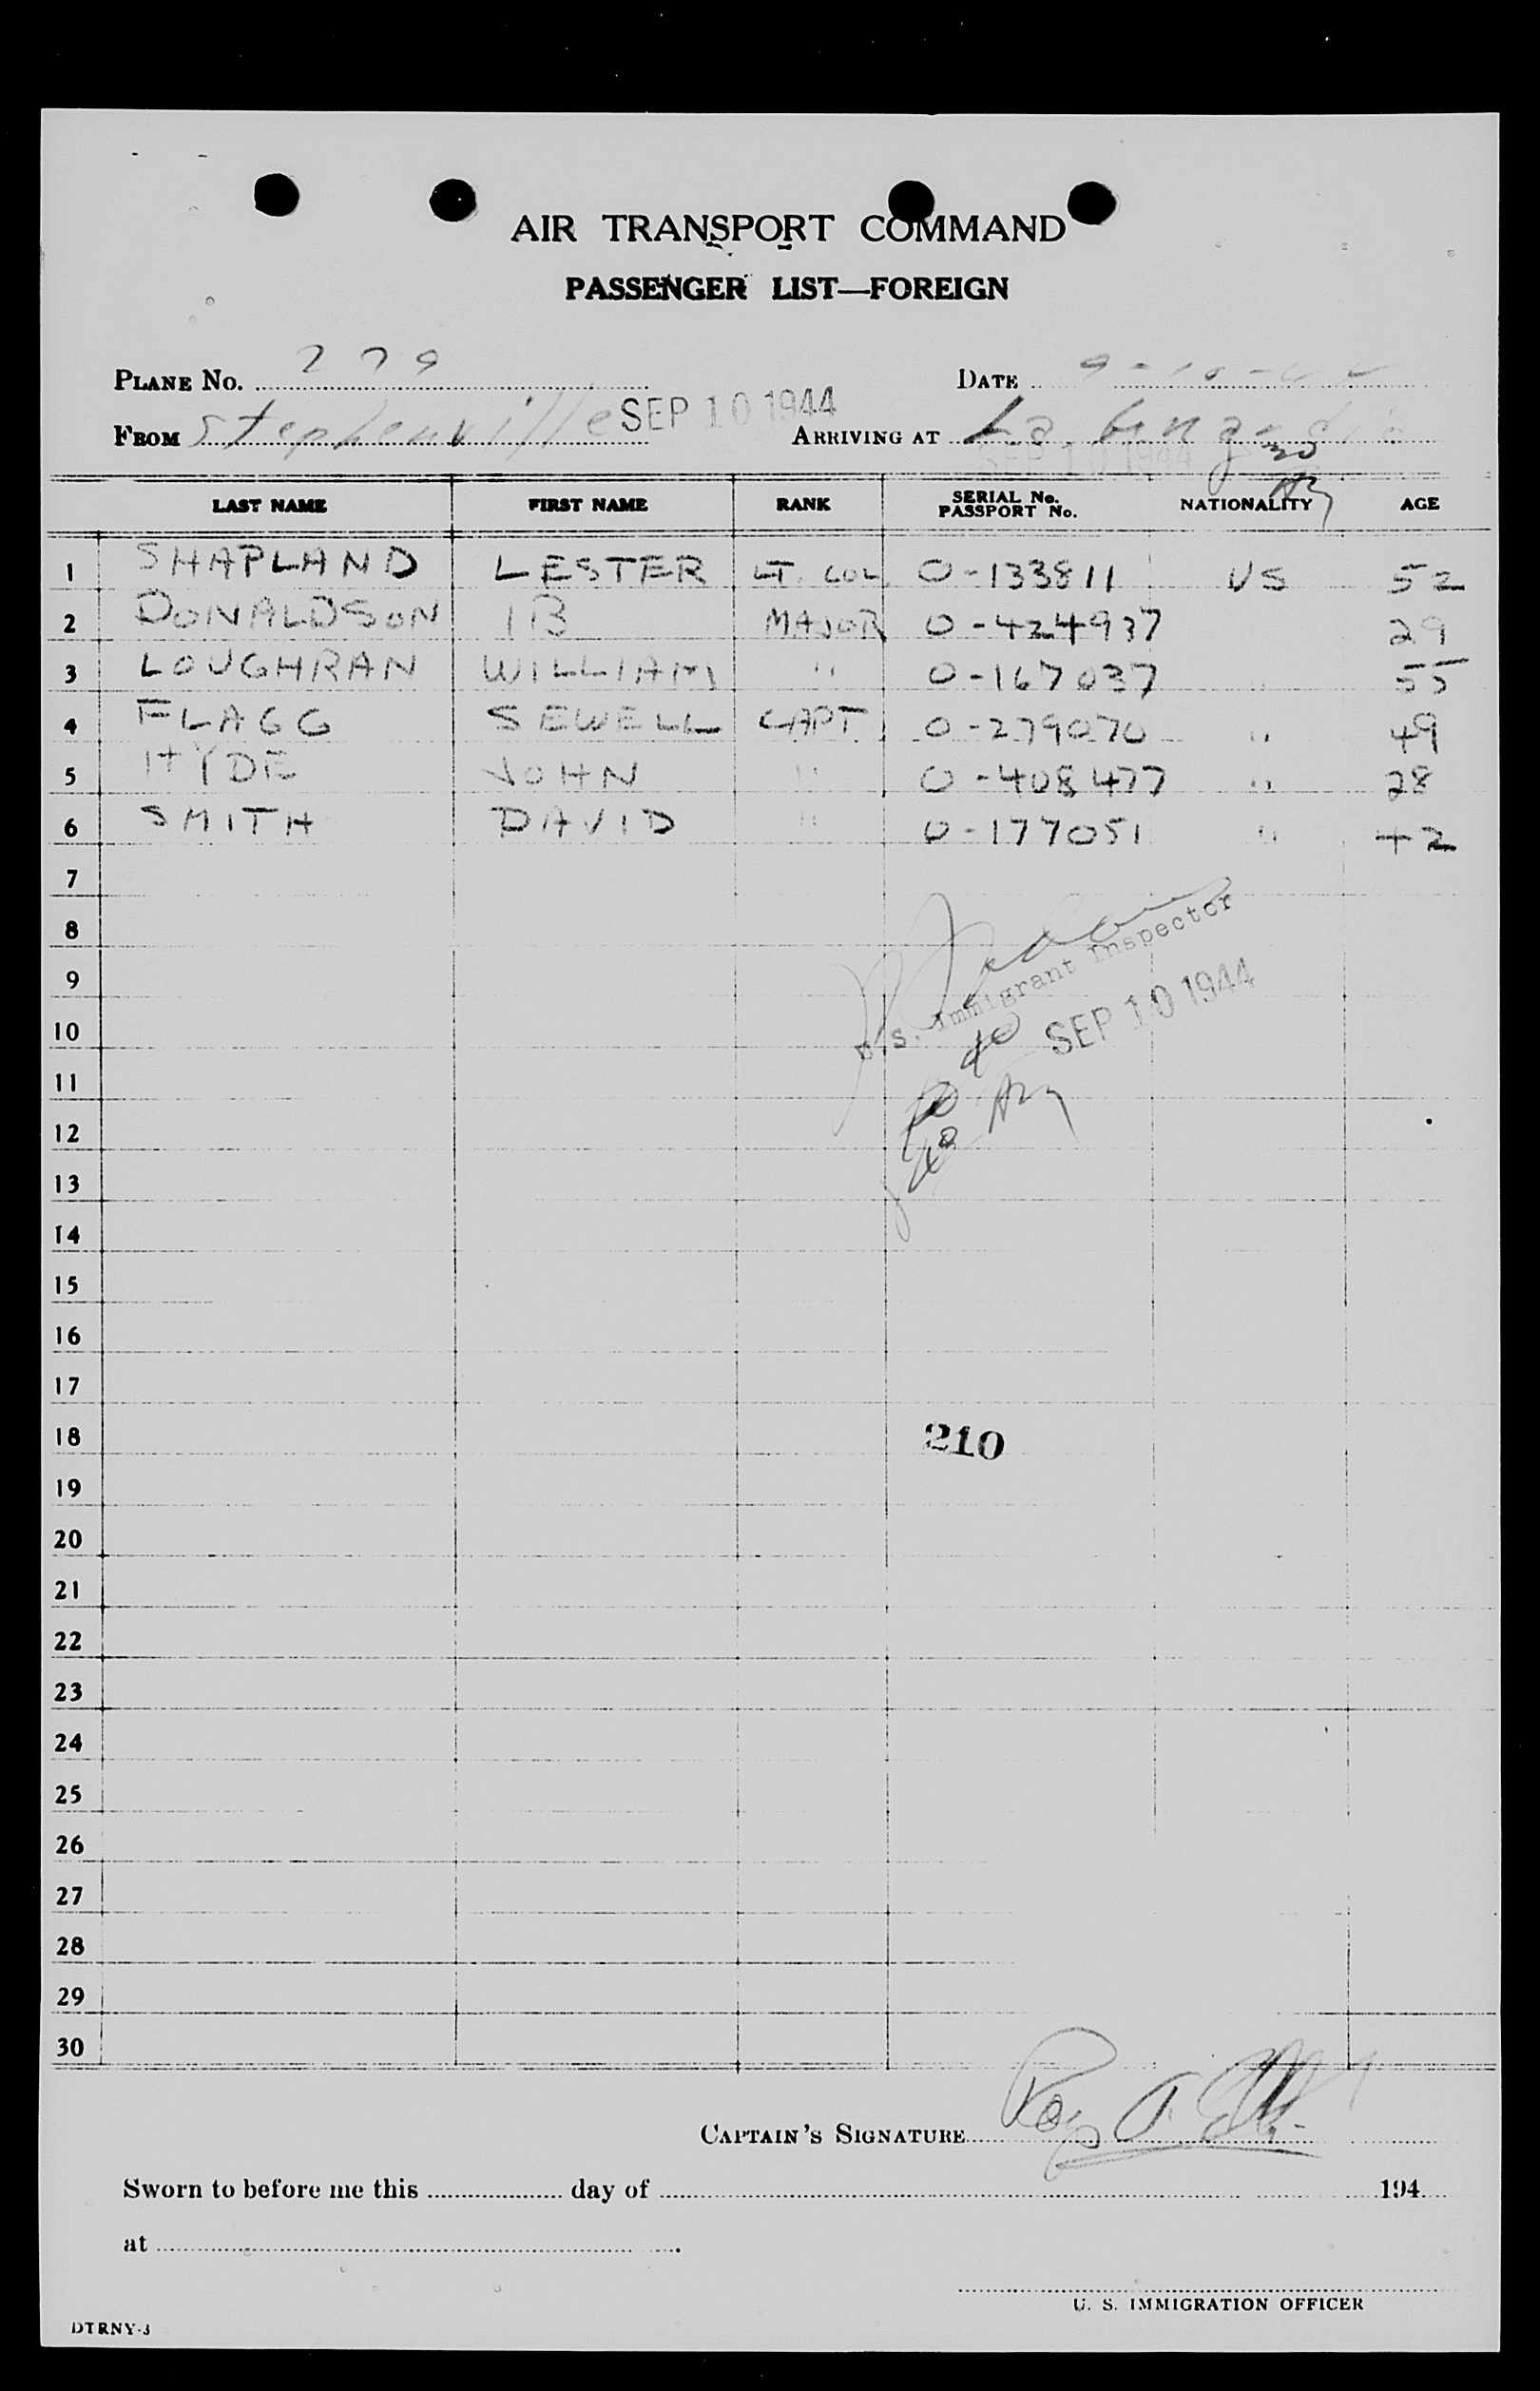 AIR TRANSPORT COMMAND
PASSENGER LIST—FOREIGN
PLANE No. 279 DATE 9-10-44
FROM Stephenville SEP 10 1944 ARRIVING AT La Guardia
SEP 10 1944
LAST NAME FIRST NAME RANK SERIAL No. PASSPORT No. NATIONALITY AGE
1 SHAPLAND LESTER LT. COL. O-133811 US 52
2 DONALDSON IB MAJOR O-424937 29
3 LOUGHRAN WILLIAM " O-167037 " 55
4 FLAGG SEWELL CAPT. O-279070 " 49
5 HYDE JOHN " O-408477 " 28
6 SMITH DAVID " O-177051 " 42
7
8
U.S. Immigrant Inspector
9
SEP 10 1944
10
11
12
13
14
15
16
17
18 210
19
20
21
22
23
24
25
26
27
28
29
30
CAPTAIN'S SIGNATURE Roy A.
Sworn to before me this day of 194
at
U. S. IMMIGRATION OFFICER
DTRNY-3